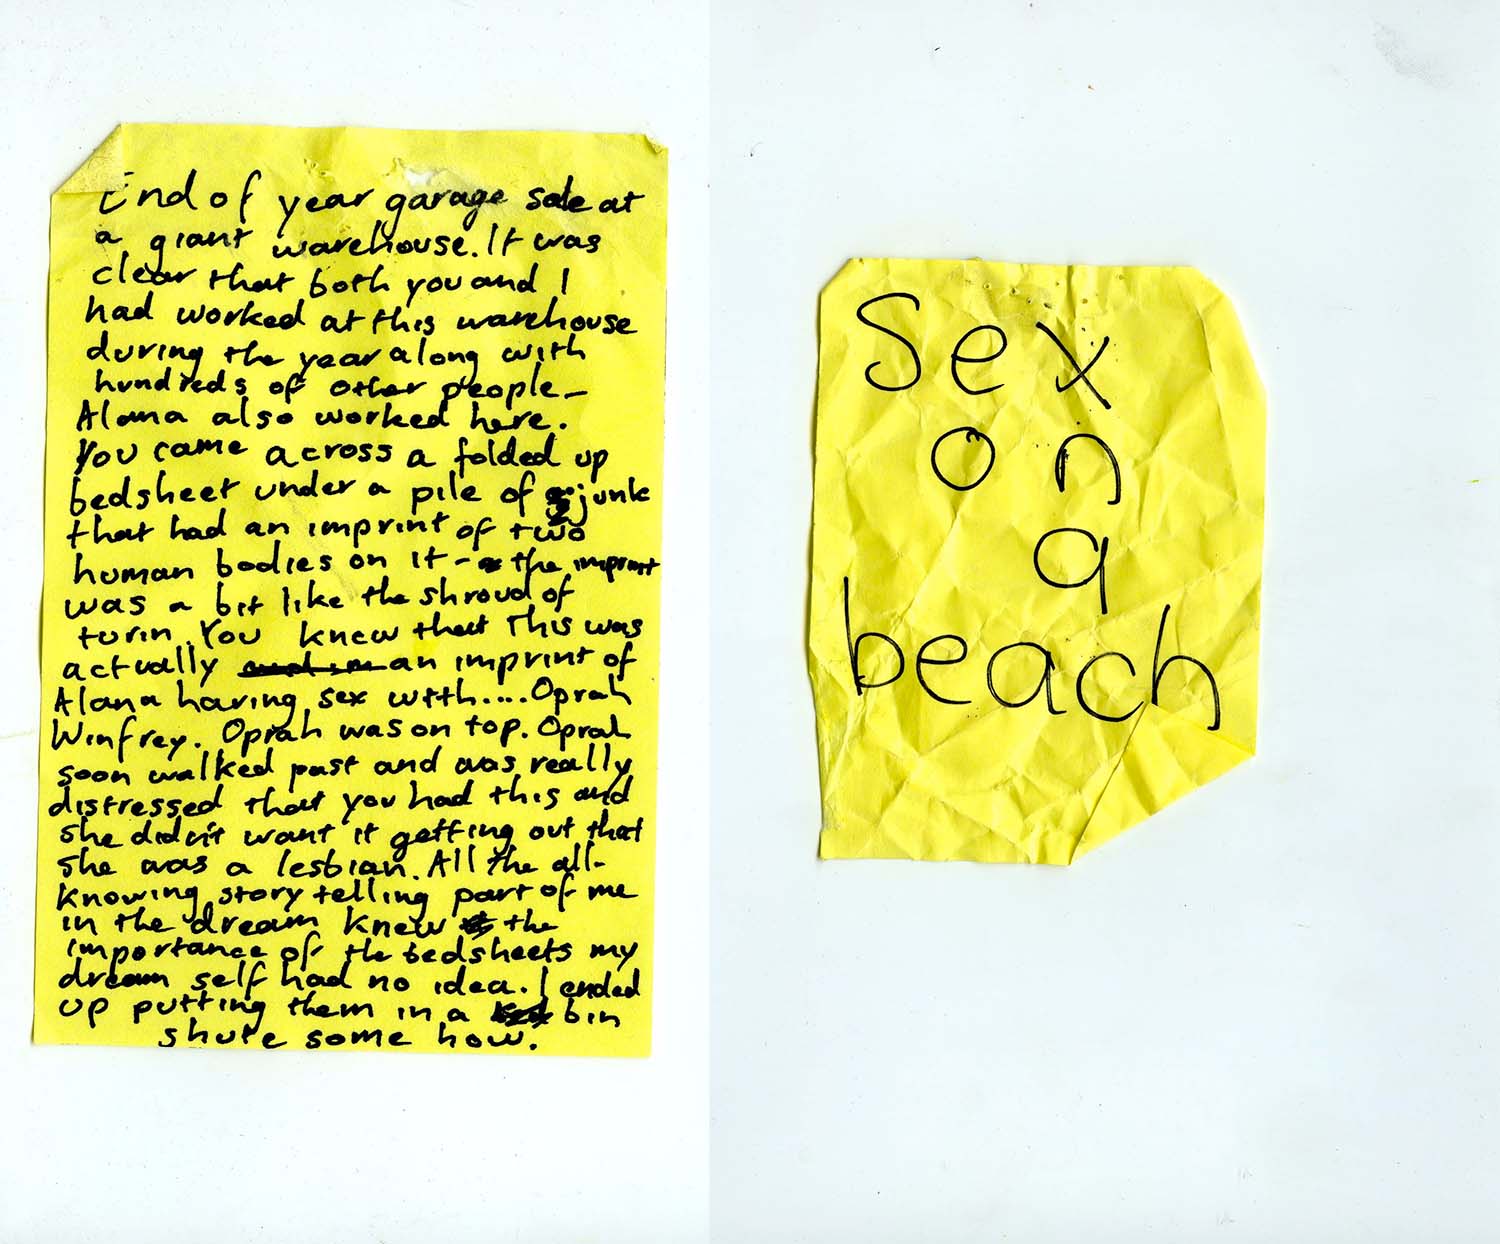 End of year garage sale at
a giant warehouse. It was
clear that both you and I
had worked at this warehouse
during the year along with
hundreds of other people –
Alana also worked here.
You came across a folded up
bedsheet under a pile of junk
that had an imprint of two
human bodies on it – the imprint
was a bit like the shroud of
turin. You knew that this was
actually an imprint of
Alana having sex with.... Oprah
Winfrey. Oprah was on top. Oprah
soon walked past and was really
distressed that you had this and
she didn't want it getting out that
she was a lesbian. All the all-
knowing story telling part of me
in the dream knew the
importance of the bedsheets my
dream self had no idea. I ended
up putting them in a bin
shute some how.
Sex
on
a
beach